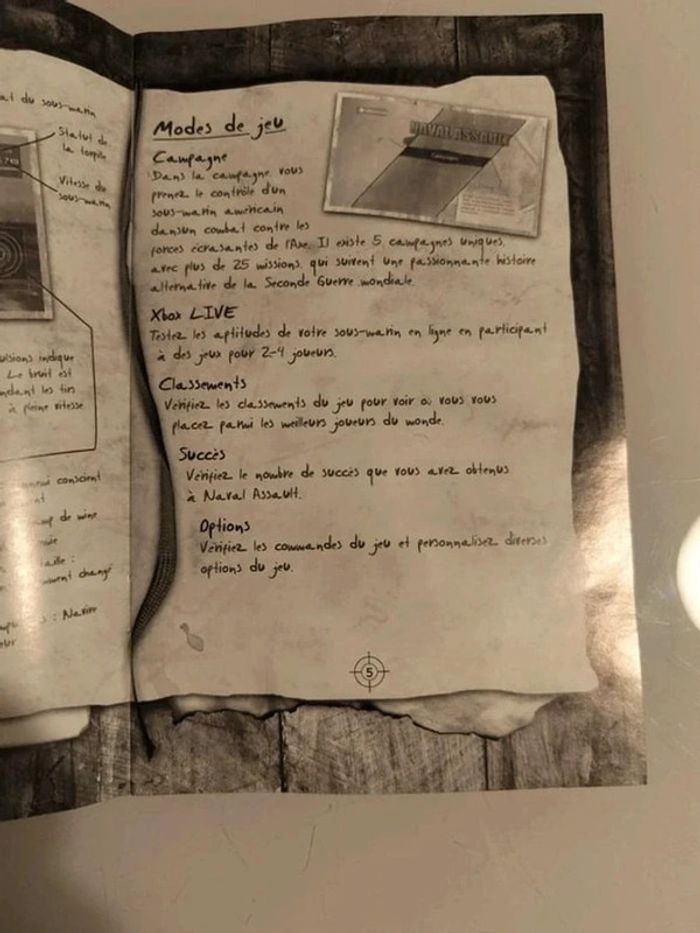 at du sous-marin
Statut de
la torpille
Vitesse du
sous-marin
ulsions indique
Le bruit est
ndant les tirs
à pleine vitesse
nnemi conscient
nt
de mine
aille :
mment changé
: Navire
eur
Modes de jeu
NAVAL ASSAULT
Campagne
Dans la campagne vous
prenez le contrôle d'un
sous-marin américain
dansun combat contre les
forces écrasantes de l'Axe. Il existe 5 campagnes uniques,
avec plus de 25 missions, qui suivent une passionnante histoire
alternative de la Seconde Guerre mondiale.
Xbox LIVE
Testez les aptitudes de votre sous-marin en ligne en participant
à des jeux pour 2-4 joueurs.
Classements
Vérifiez les classements du jeu pour voir où vous vous
placez parmi les meilleurs joueurs du monde.
Succès
Vérifiez le nombre de succès que vous avez obtenus
à Naval Assault.
Options
Vérifiez les commandes du jeu et personnalisez diverses
options du jeu.
5